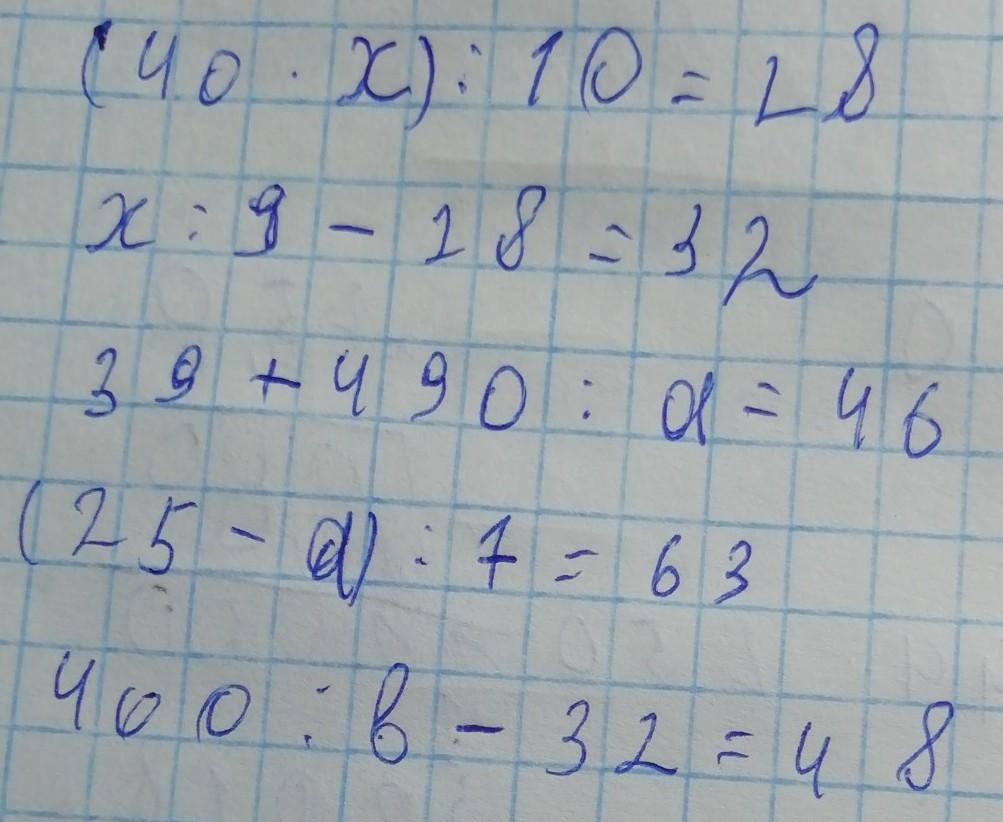 (40 · x) : 10 = 28
x : 9 - 28 = 32
39 + 490 : a = 46
(25 - a) : 7 = 63
400 : b - 32 = 48